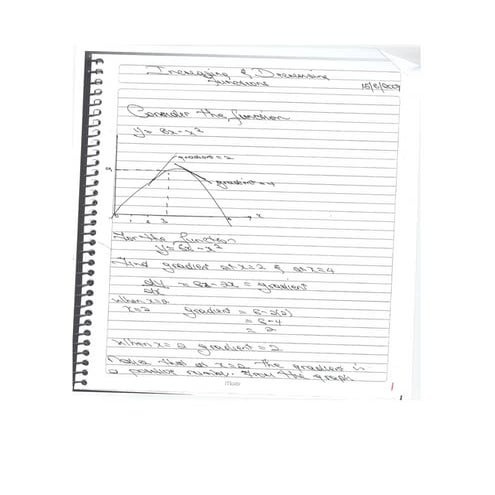 Increasing & Decreasing
functions
Consider the function
y = 6x - x²
gradient = 2
gradient = -4
9
0
3
6
x
For the function
y = 6x - x²
Find gradient at x = 2 & at x = 4
dy/dx = 6x - 2x = gradient
when x = 2
x = 2 gradient = 6 - 2(2)
= 6 - 4
= 2
when x = 2 gradient = 2
Notice that at x = 2 the gradient is
a positive number. From the graph
1